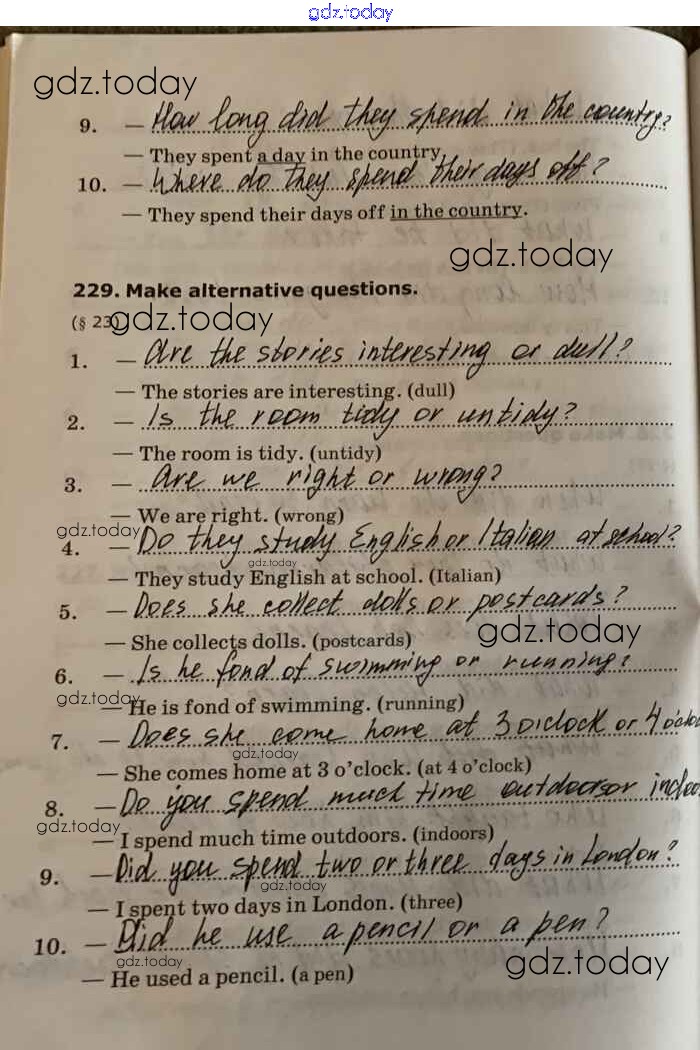 gdz.today
gdz.today
9. — How long did they spend in the country?
— They spent a day in the country.
10. — Where do they spend their days off?
— They spend their days off in the country.
gdz.today
229. Make alternative questions.
(§ 23) gdz.today
1. — Are the stories interesting or dull?
— The stories are interesting. (dull)
2. — Is the room tidy or untidy?
— The room is tidy. (untidy)
3. — Are we right or wrong?
— We are right. (wrong)
gdz.today
4. — Do they study English or Italian at school?
gdz.today
— They study English at school. (Italian)
5. — Does she collect dolls or postcards?
— She collects dolls. (postcards) gdz.today
6. — Is he fond of swimming or running?
gdz.today
— He is fond of swimming. (running)
7. — Does she come home at 3 o'clock or 4 o'clo
gdz.today
— She comes home at 3 o'clock. (at 4 o'clock)
8. — Do you spend much time outdoors or indoo
gdz.today
— I spend much time outdoors. (indoors)
9. — Did you spend two or three days in London?
gdz.today
— I spent two days in London. (three)
10. — Did he use a pencil or a pen?
gdz.today gdz.today
— He used a pencil. (a pen)